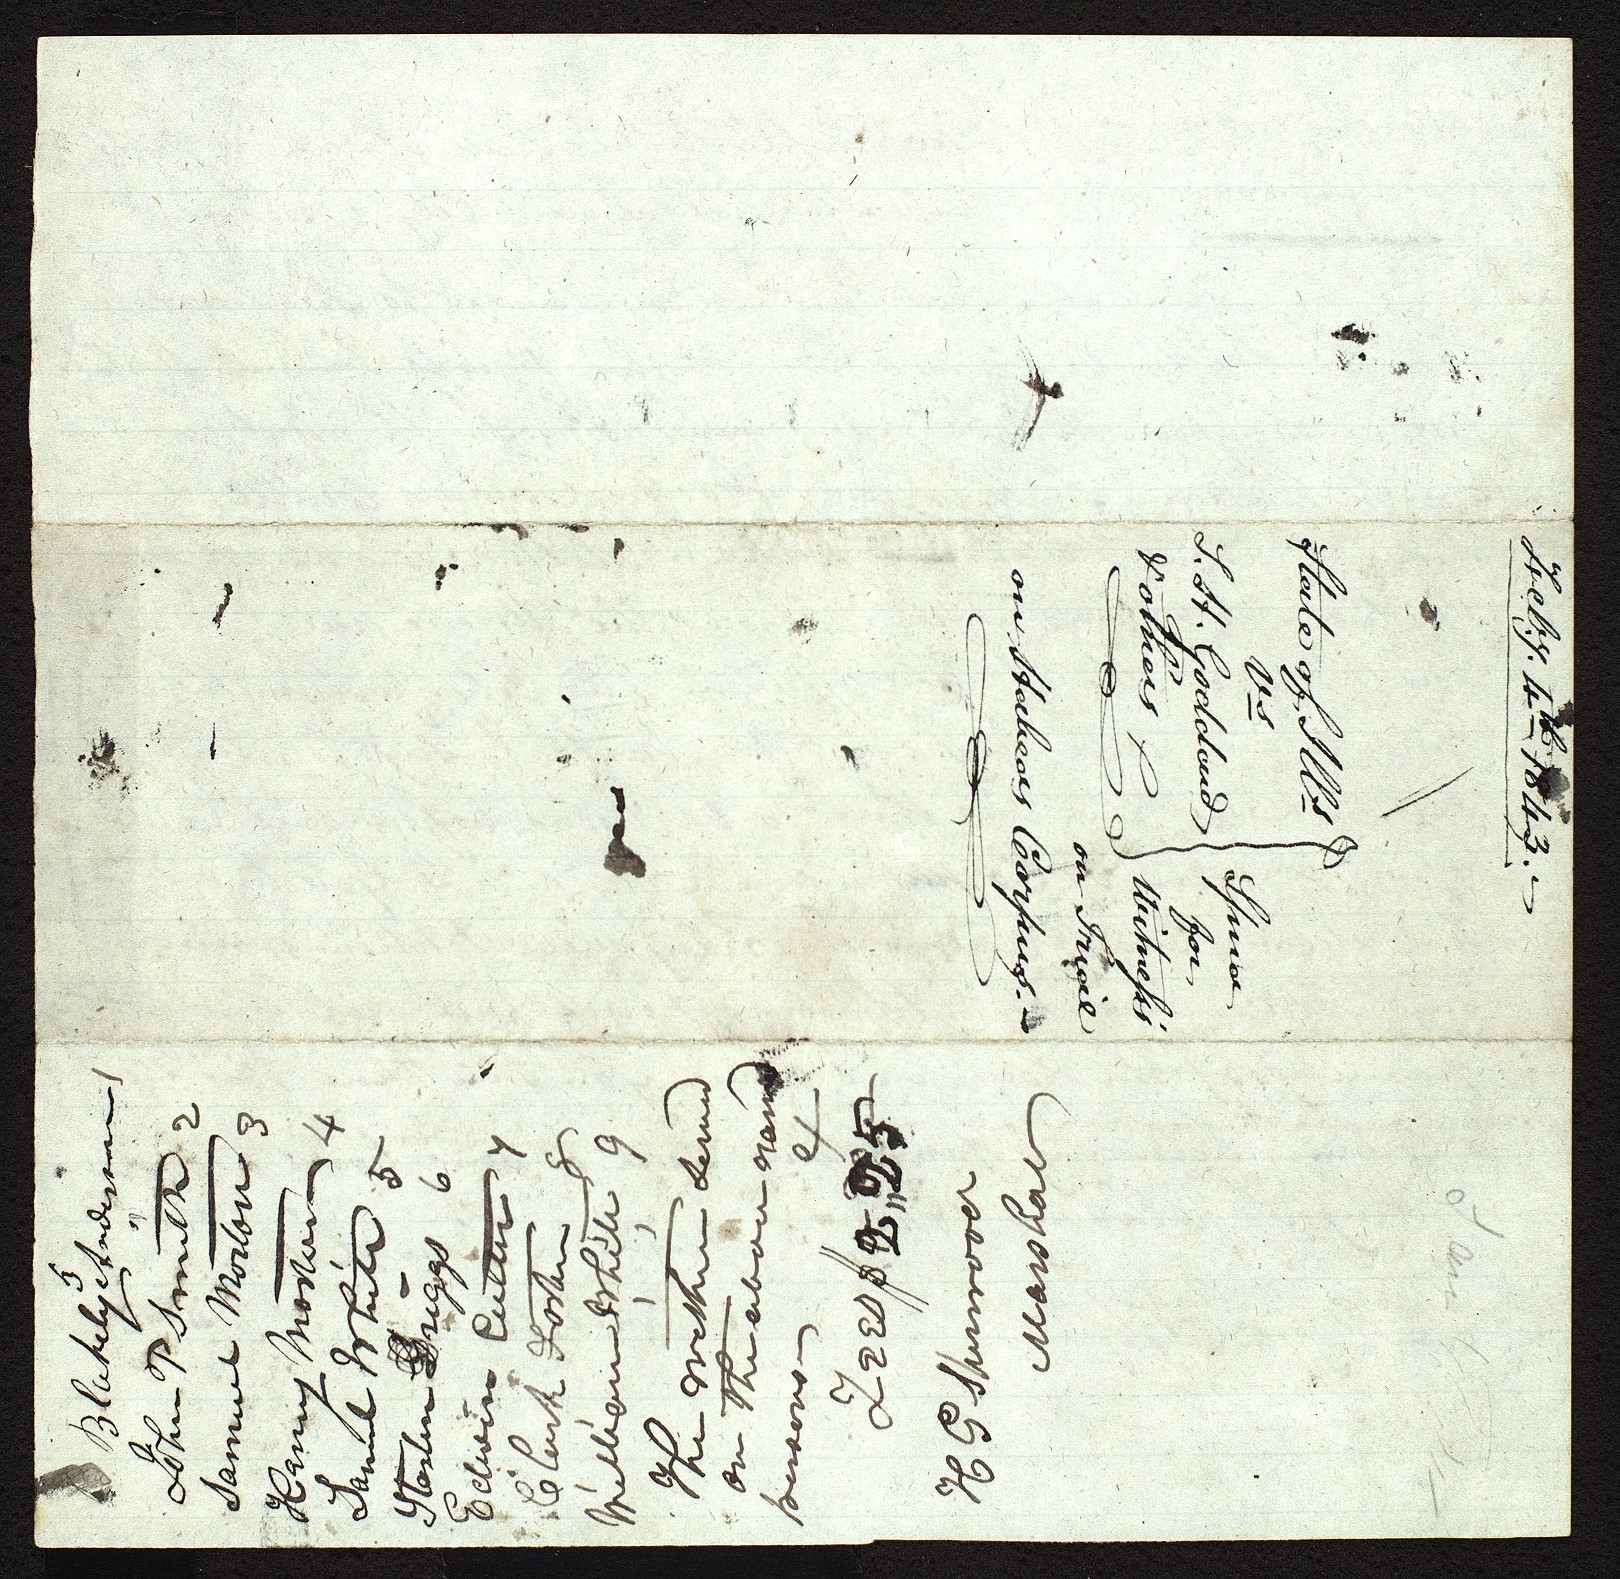 Feby. 4th 1843.
State of Ills
vs
S. H. Goddard
& others
Spua
for
Witness
on Trial
on Habeas Corpus.
Blakely Anderson 1
John P Smith 2
Samuel Morton 3
Harvy Morton 4
Samuel White 5
Griggs 6
Edwin Cutler 7
Clark Foster 8
William White 9
The within served
on the above named
persons
H G Spurnover
Marshall